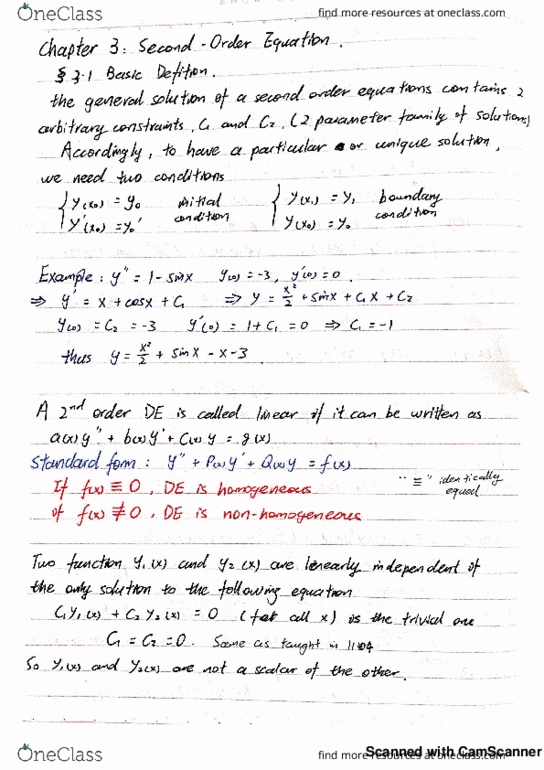 OneClass find more resources at oneclass.com
Chapter 3: Second-Order Equation.
§ 3.1 Basic Defition.
the general solution of a second order equations contains 2
arbitrary constraints, C₁ and C₂, (2 parameter family of solutions)
Accordingly, to have a particular or unique solution,
we need two conditions
{ y(x₀) = y₀ initial { y(x₁) = y₁ boundary
y'(x₀) = y₀' condition y(x₀) = y₀ condition
Example: y'' = 1 - sinx y(0) = -3, y'(0) = 0.
⇒ y' = x + cosx + C₁ ⇒ y = x²/2 + sinx + C₁x + C₂
y(0) = C₂ = -3 y'(0) = 1 + C₁ = 0 ⇒ C₁ = -1
thus y = x²/2 + sinx - x - 3.
A 2nd order DE is called linear if it can be written as
a(x)y'' + b(x)y' + C(x)y = g(x)
Standard form: y'' + P(x)y' + Q(x)y = f(x)
"≡" identically
equal
If f(x) ≡ 0, DE is homogeneous
if f(x) ≢ 0, DE is non-homogeneous
Two function y₁(x) and y₂(x) are linearly independent if
the only solution to the following equation
C₁y₁(x) + C₂y₂(x) = 0 (for all x) is the trivial one
C₁ = C₂ = 0. Same as taught in
So y₁(x) and y₂(x) are not a scalar of the other.
OneClass find more resources at oneclass.com
Scanned with CamScanner